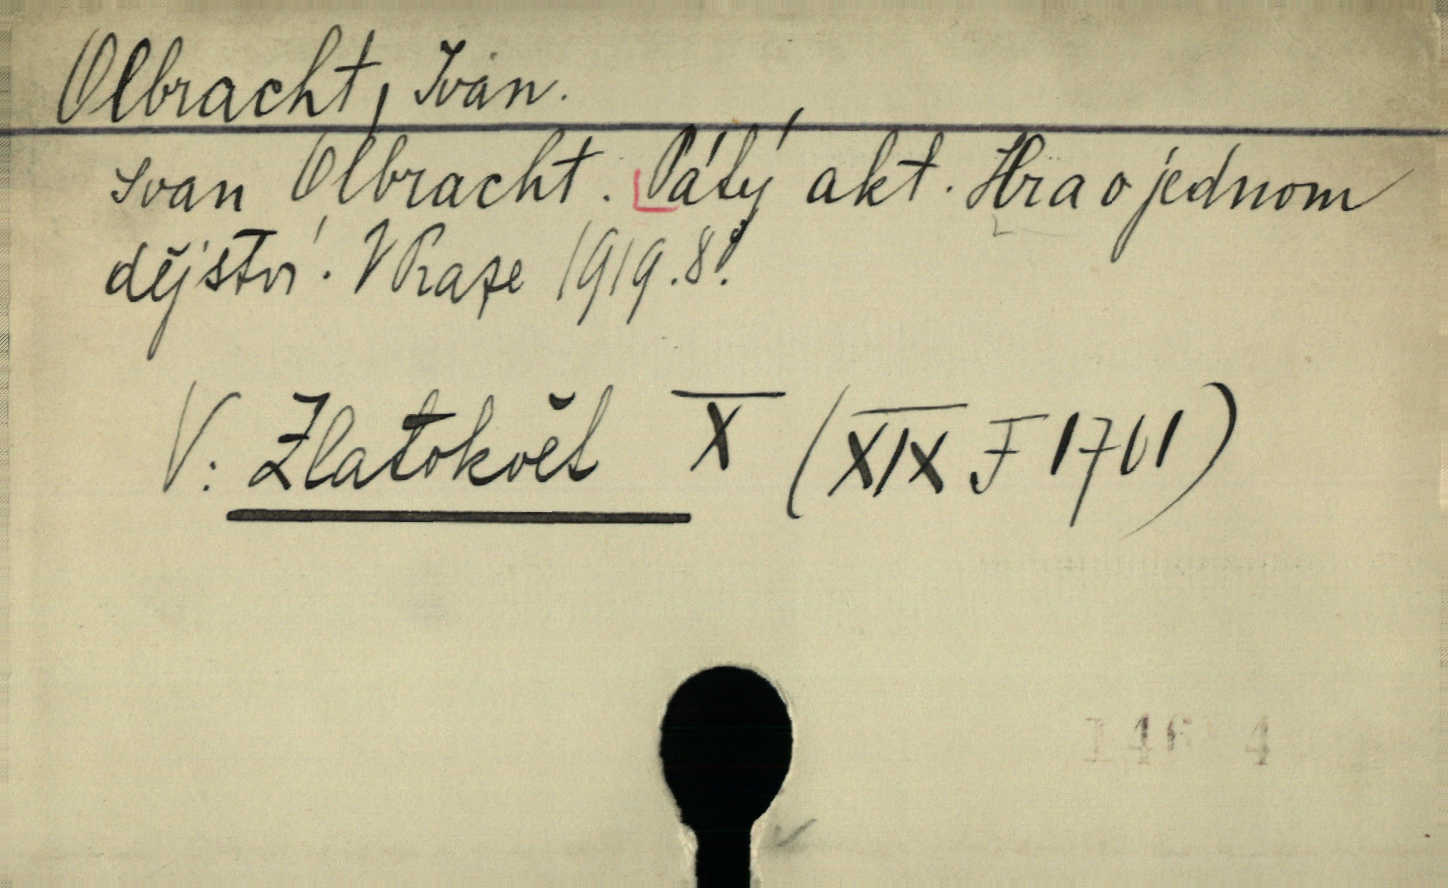 Olbracht, Ivan.
Ivan Olbracht. Pátý akt. Hra o jednom
dějství. V Praze 1919. 8°.
V: Zlatokvět X (XIX F 1761)